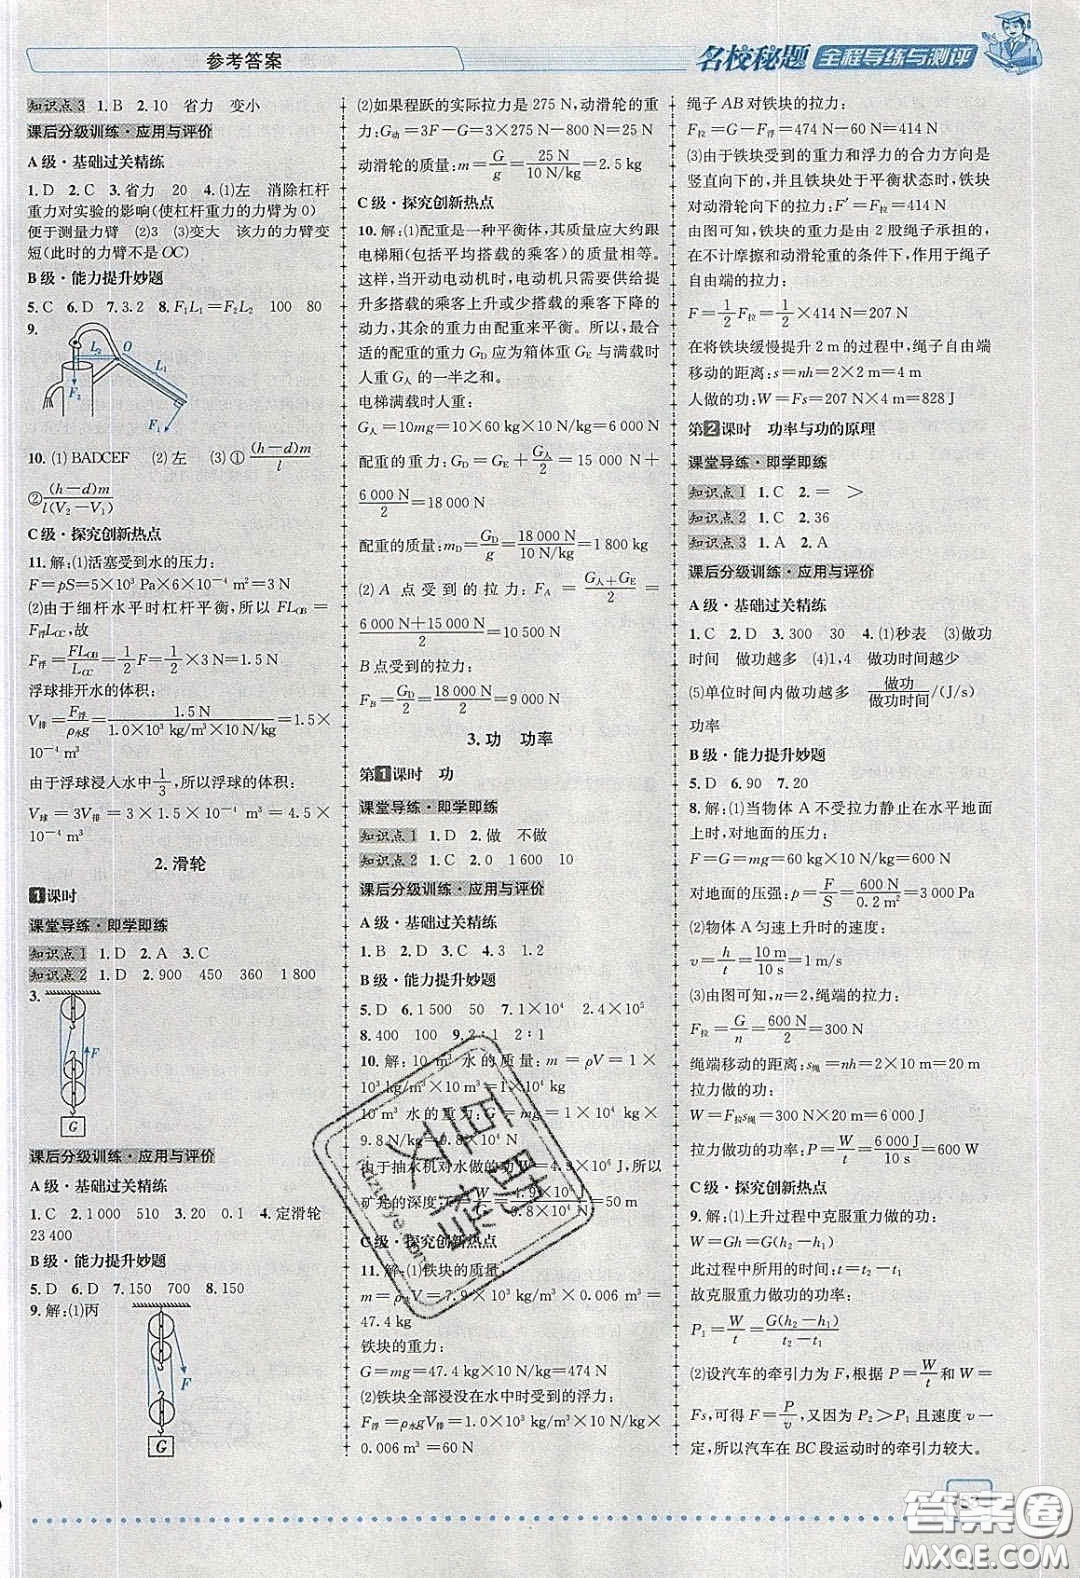 参考答案
名校秘题 全程导练与测评
知识点3 1.B 2.10 省力 变小
课后分级训练·应用与评价
A级·基础过关精练
1.D 2.C 3.省力 20 4.(1)左 消除杠杆
重力对实验的影响(使杠杆重力的力臂为0)
便于测量力臂 (2)3 (3)变大 该力的力臂变
短(此时的力臂不是OC)
B级·能力提升妙题
5.C 6.D 7.3.2 8.F₁L₁=F₂L₂ 100 80
9.
L₂ O L₁
F₂
F₁
10.(1)BADCEF (2)左 (3)①(h-d)m/l
②(h-d)m/l(V₂-V₁)
C级·探究创新热点
11.解:(1)活塞受到水的压力:
F=pS=5×10³ Pa×6×10⁻⁴ m²=3 N
(2)由于细杆水平时杠杆平衡,所以 FL_OB=
F浮L_OC,故
F浮=FL_OB/L_OC=1/2F=1/2×3 N=1.5 N
浮球排开水的体积:
V排=F浮/ρ水g=1.5 N/(1.0×10³ kg/m³×10 N/kg)=1.5×
10⁻⁴ m³
由于浮球浸入水中1/3,所以浮球的体积:
V球=3V排=3×1.5×10⁻⁴ m³=4.5×
10⁻⁴ m³
2.滑轮
1课时
课堂导练·即学即练
知识点1 1.D 2.A 3.C
知识点2 1.D 2.900 450 360 1 800
3.
F
G
课后分级训练·应用与评价
A级·基础过关精练
1.C 2.1 000 510 3.20 0.1 4.定滑轮
23 400
B级·能力提升妙题
5.D 6.D 7.150 700 8.150
9.解:(1)丙
F
G
(2)如果程跃的实际拉力是275 N,动滑轮的重
力:G动=3F-G=3×275 N-800 N=25 N
动滑轮的质量:m=G/g=25 N/10 N/kg=2.5 kg
C级·探究创新热点
10.解:(1)配重是一种平衡体,其质量应大约跟
电梯厢(包括平均搭载的乘客)的质量相等。
这样,当开动电动机时,电动机只需要使用提
升多搭载的乘客上升或少搭载的乘客下降的
动力,其余的重力由配重来平衡。所以,最合
适的配重的重力G_D应为箱体重G_E与满载时
人重G人的一半之和。
电梯满载时人重:
G人=10mg=10×60 kg×10 N/kg=6 000 N
配重的重力:G_D=G_E+G人/2=15 000 N+
6 000 N/2=18 000 N
配重的质量:m_D=G_D/g=18 000 N/10 N/kg=1 800 kg
(2)A点受到的拉力:F_A=(G人+G_E)/2=
(6 000 N+15 000 N)/2=10 500 N
B点受到的拉力:
F_B=G_D/2=18 000 N/2=9 000 N
3.功 功率
第1课时 功
课堂导练·即学即练
知识点1 1.D 2.做 不做
知识点2 1.C 2.0 1 600 10
课后分级训练·应用与评价
A级·基础过关精练
1.B 2.D 3.C 4.3 1.2
B级·能力提升妙题
5.D 6.1 500 50 7.1×10⁴ 2.4×10⁵
8.400 100 9.2:1 2:1
10.解:10 m³ 水的质量:m=ρV=1×
10³ kg/m³×10 m³=1×10⁴ kg
10 m³ 水的重力:G=mg=1×10⁴ kg×
9.8 N/kg=9.8×10⁴ N
由于抽水机对水做的功W=4.9×10⁶ J,所以
矿井的深度:h=W/G=4.9×10⁶ J/9.8×10⁴ N=50 m
C级·探究创新热点
11.解:(1)铁块的质量:
m=ρ铁V=7.9×10³ kg/m³×0.006 m³=
47.4 kg
铁块的重力:
G=mg=47.4 kg×10 N/kg=474 N
(2)铁块全部浸没在水中时受到的浮力:
F浮=ρ水gV排=1.0×10³ kg/m³×10 N/kg×
0.006 m³=60 N
绳子AB对铁块的拉力:
F拉=G-F浮=474 N-60 N=414 N
(3)由于铁块受到的重力和浮力的合力方向是
竖直向下的,并且铁块处于平衡状态时,铁块
对动滑轮向下的拉力:F′=F拉=414 N
由图可知,铁块的重力是由2股绳子承担的,
在不计摩擦和动滑轮重的条件下,作用于绳子
自由端的力:
F=1/2F拉=1/2×414 N=207 N
在将铁块缓慢提升2 m的过程中,绳子自由端
移动的距离:s=nh=2×2 m=4 m
人做的功:W=Fs=207 N×4 m=828 J
第2课时 功率与功的原理
课堂导练·即学即练
知识点1 1.C 2.= >
知识点2 1.C 2.36
知识点3 1.A 2.A
课后分级训练·应用与评价
A级·基础过关精练
1.C 2.D 3.300 30 4.(1)秒表 (3)做功
时间 做功越多 (4)1,4 做功时间越少
(5)单位时间内做功越多 做功/做功时间/(J/s)
功率
B级·能力提升妙题
5.D 6.90 7.20
8.解:(1)当物体A不受拉力静止在水平地面
上时,对地面的压力:
F=G=mg=60 kg×10 N/kg=600 N
对地面的压强:p=F/S=600 N/0.2 m²=3 000 Pa
(2)物体A匀速上升时的速度:
v=h/t=10 m/10 s=1 m/s
(3)由图可知,n=2,绳端的拉力:
F拉=G/n=600 N/2=300 N
绳端移动的距离:s绳=nh=2×10 m=20 m
拉力做的功:
W=F拉s绳=300 N×20 m=6 000 J
拉力做功的功率:P=W/t=6 000 J/10 s=600 W
C级·探究创新热点
9.解:(1)上升过程中克服重力做的功:
W=Gh=G(h₂-h₁)
此过程中所用的时间:t=t₂-t₁
故克服重力做功的功率:
P₁=W/t=G(h₂-h₁)/(t₂-t₁)
(2)设汽车的牵引力为F,根据P=W/t和W=
Fs,可得F=P/v,又因为P₂>P₁且速度v一
定,所以汽车在BC段运动时的牵引力较大。
答案圈
MXQE.COM